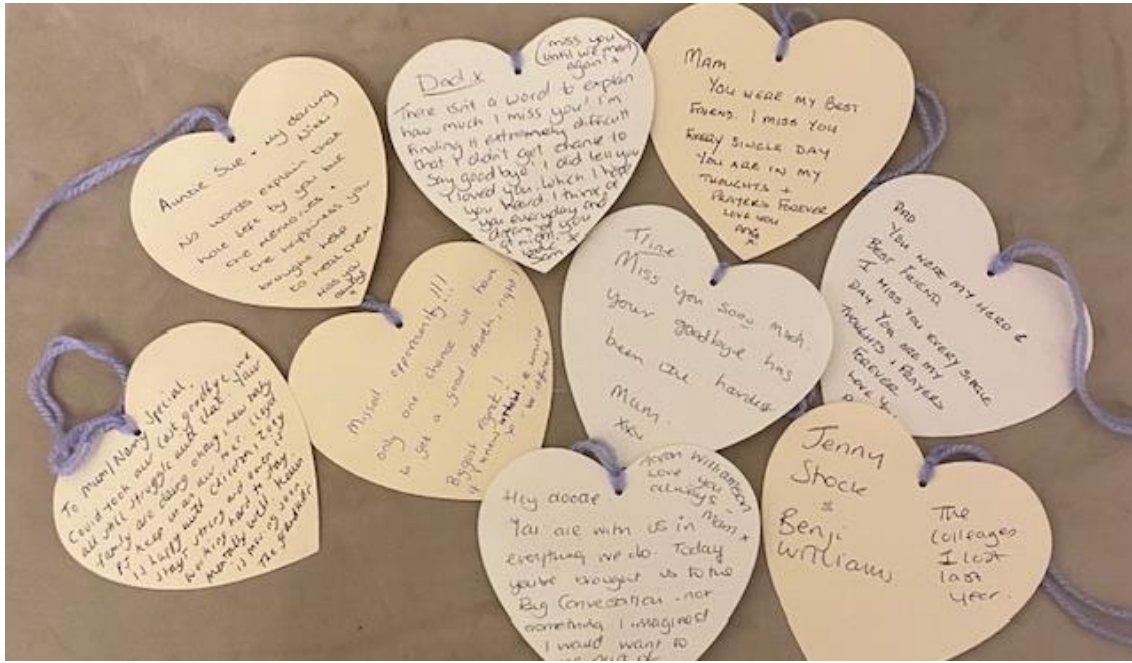 Auntie Sue + My darling
Nikki
No words explain that
have left by you but
the memories +
the happiness you
brought help
to heal them
Miss you
always
x
Dad x
(miss you
until we meet
again! x)
There isn't a word to explain
how much I miss you! I'm
finding it extremely difficult
that I didn't get chance to
say goodbye! I did tell you
I loved you. Which I hope
you heard. I think of
you everyday and
dream of you
at night. you
x
Sam
MAM
YOU WERE MY BEST
FRIEND. I MISS YOU
EVERY SINGLE DAY
YOU ARE IN MY
THOUGHTS +
PRAYERS FOREVER
LOVE YOU
DAD
YOU WERE MY HERO &
BEST FRIEND
I MISS YOU EVERY SINGLE
DAY YOU ARE MY
THOUGHTS & PRAYERS
FOREVER
LOVE YOU
To Mum/Nanny Special.
Covid took our last goodbye, we
all still struggle with that. Your
family are doing okay, new baby
PJ keep us on our toes. Lloyd
is happy with Christian, Izzy
stays strong and even is
working hard to stay
mentally well. Kellie
is moving soon
The grandkids
Missed opportunity!!!
only one chance we have
to get a good death, right!
Biggest regret!
if I knew
so to be
Miss you sooo much.
Your goodbye has
been the hardest
Mam.
xxx
Hey doodle
Williamson
Love you
always -
Mam x
You are with us in
everything we do. Today
you've brought us to the
Big Conversation - not
something I imagined
I would want to
be part of
Jenny
Shock
&
Benji
Williams
The
colleages
I lost
last
year.